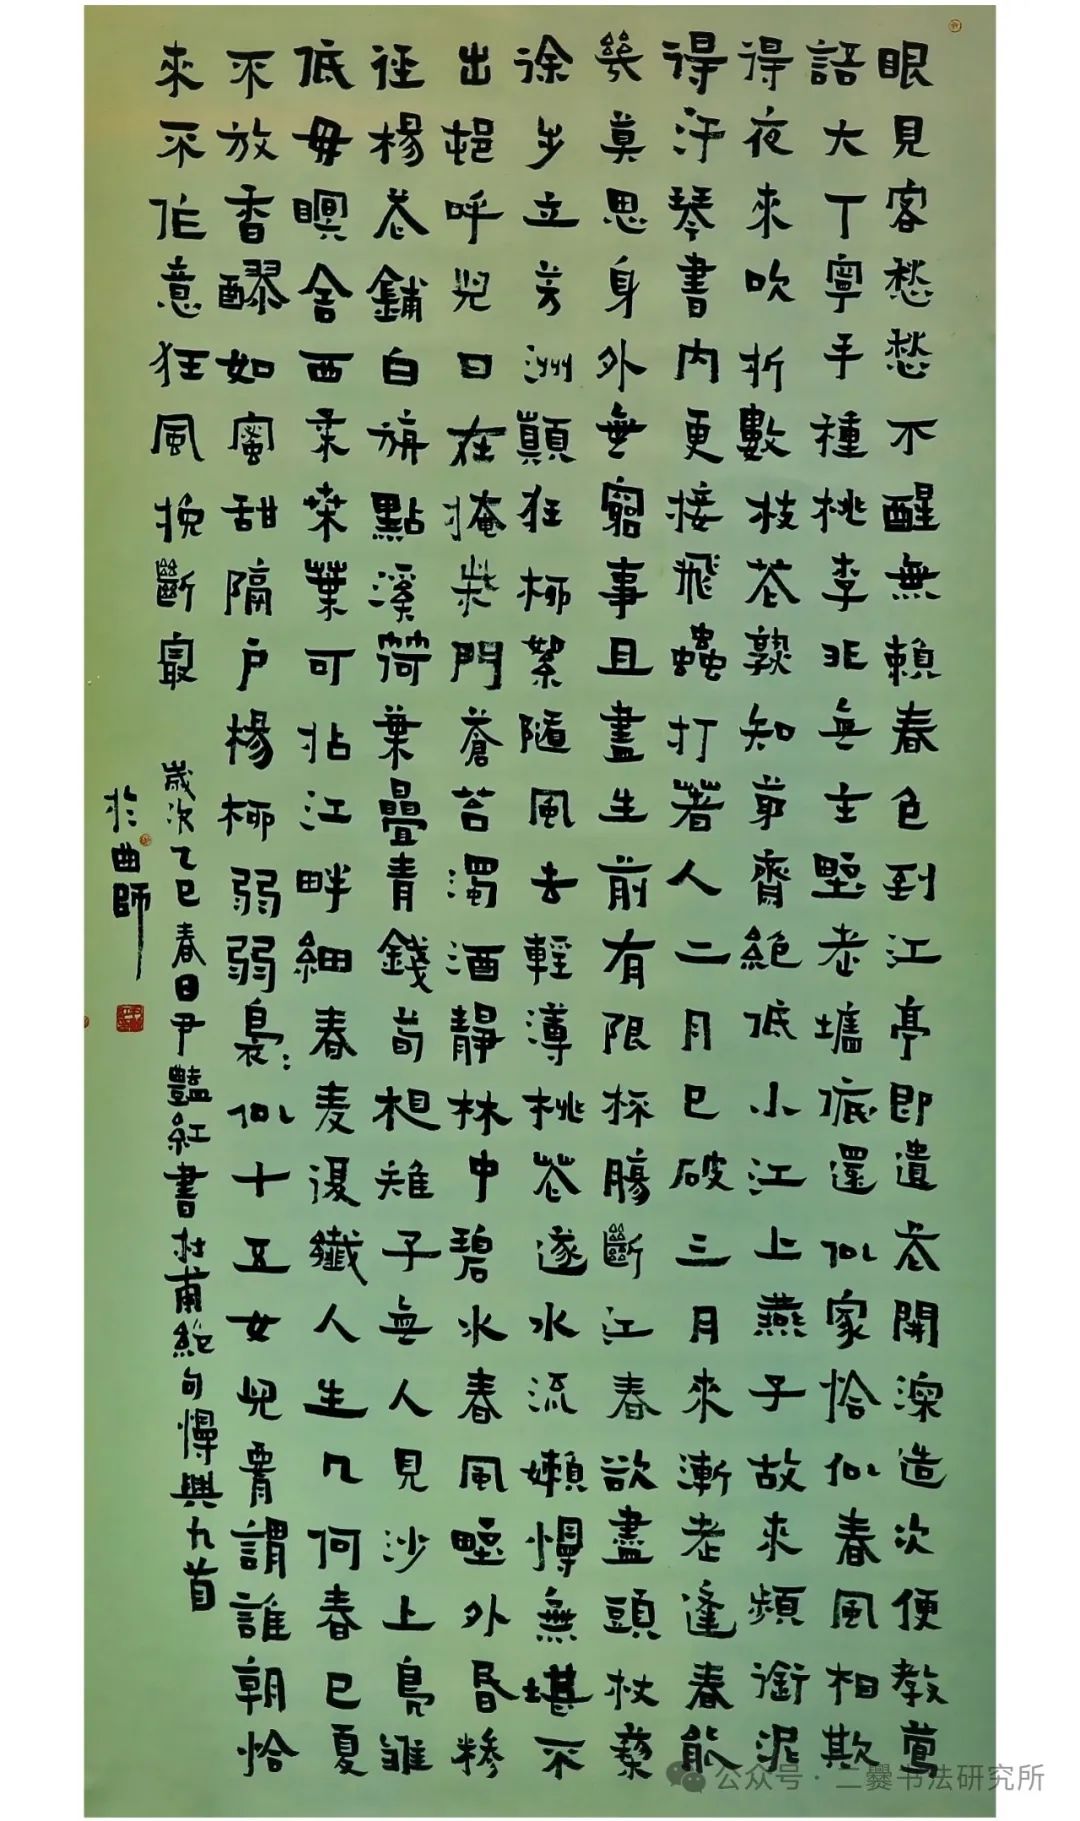 眼見客愁愁不醒無賴春色到江亭即遣花開深造次便教鶯
語大丁寧手種桃李非無主野老墻底還似家恰似春風相欺
得夜來吹折數枝花熟知茅齋絕低小江上燕子故來頻銜泥
得汙琴書內更接飛蟲打著人二月已破三月來漸老逢春能
幾莫思身外無窮事且盡生前有限杯腸斷江春欲盡頭杖藜
徐步立芳洲顛狂柳絮隨風去輕薄桃花逐水流嬾慢無堪不
出邨呼兒日在掩柴門蒼苔濁酒靜林中碧水春風野外昏糝
徑楊花鋪白旃點溪荷葉疊青錢筍根雉子無人見沙上鳧雛
低毋瞑舍西柔桑葉可拈江畔細春麦復纖人生几何春已夏
不放香醪如蜜甜隔戶楊柳弱弱裊:似十五女兒腰謂誰朝恰
來不作意狂風挽斷最
歲次乙巳春日尹豔紅書杜甫絕句慢興九首
於曲師
公众号·二爨书法研究所